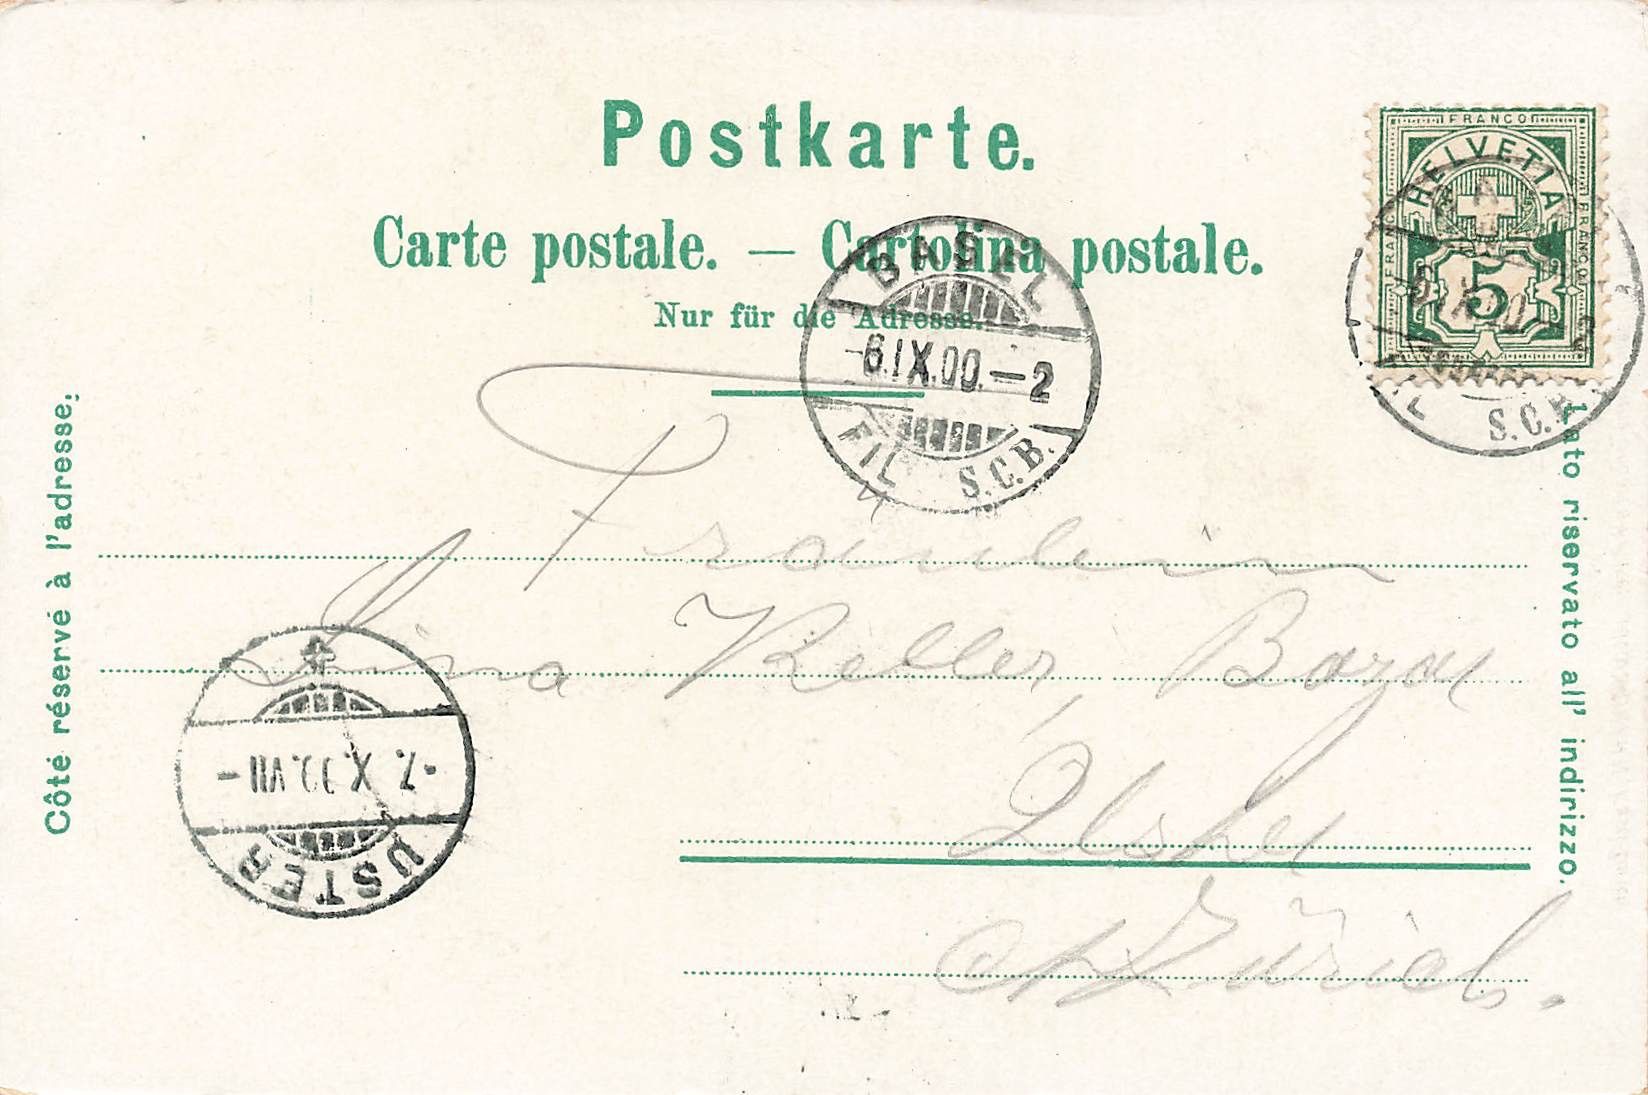 Postkarte.
FRANCO
HELVETIA
FRANCO
FRANCO
5
Carte postale. — Cartolina postale.
Nur für die Adresse.
BASEL
6.IX.00.—2
FIL. S.C.B.
S.C.B.
Côté réservé à l'adresse.
Lato riservato all' indirizzo.
Fraulein
Lina Keller, Bazar
Uster
Ct Zürich.
7. X. 00. VII -
USTER